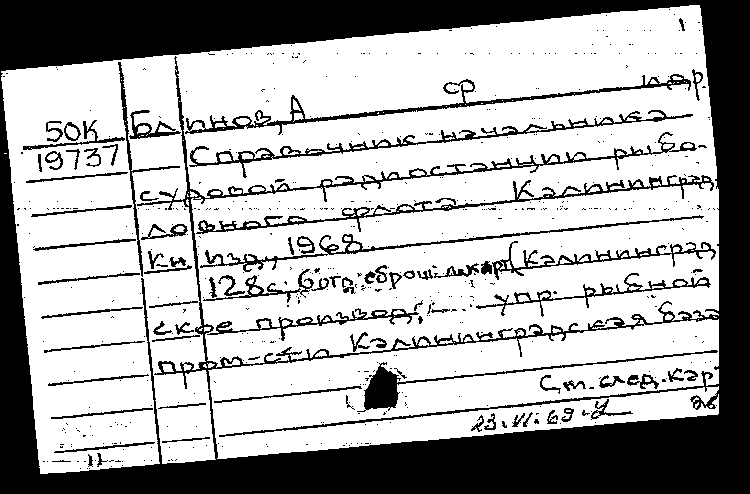 1
ср п.ф.р.
50К Блинов, А
19737 Справочник начальника
судовой радиостанции рыбо-
ловного флота Калининград,
Кн изд., 1968.
128 с; 6 отд. сброш. (Калининград-
ское производ. упр. рыбной
пром-сти Калининградская база
См. след. кар
23.VI.69.
11